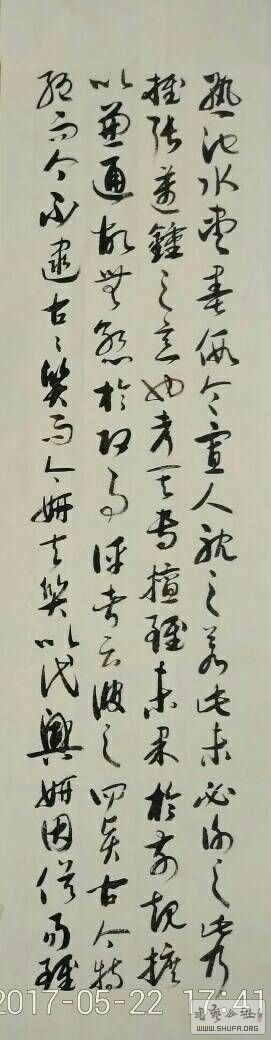 熟池水盡墨假令寡人耽之若此未必謝之此乃
推張邁鍾之意也考其專擅雖未果於前規摭
以兼通故無慚於即事評者云彼之四賢古今特
絕而今不逮古々質而今妍夫質以代興妍因俗易雖
2017-05-22 17:41
WWW.SHUFA.ORG